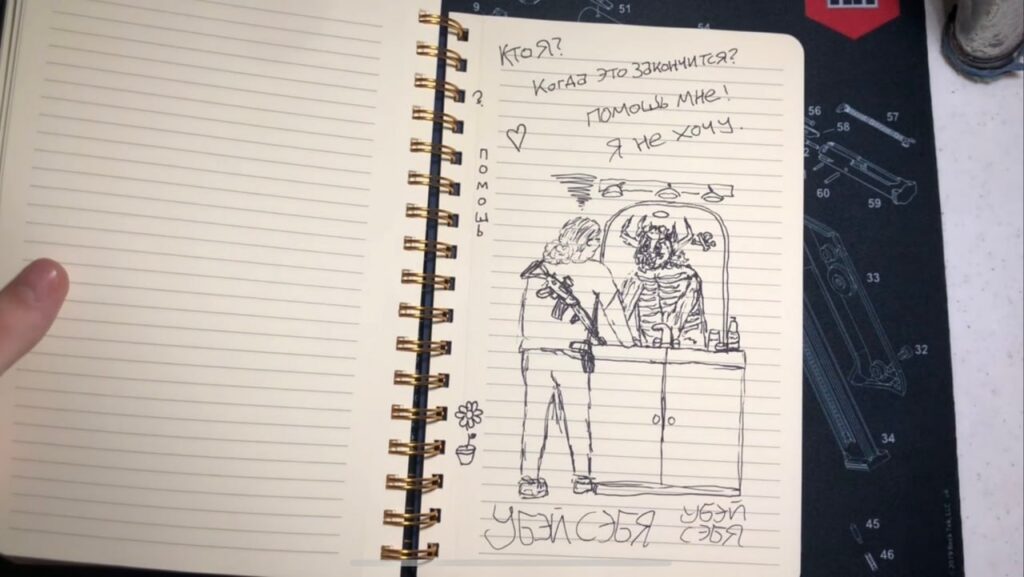 9
51
Кто я?
Когда это закончится?
помошь мне!
Я не хочу.
?
помошь
56
57
58
60
59
33
32
34
УБЭЙ СЭБЯ
УБЭЙ
СЭБЯ
45
46